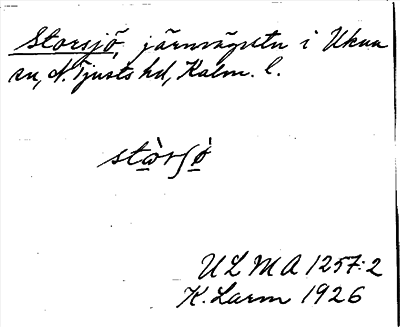 Storsjö, järnvägsstn i Ukna
sn, N. Tjusts hd, Kalm. l.
stὼrʃö̀
ULMA 1257:2
K. Larm 1926